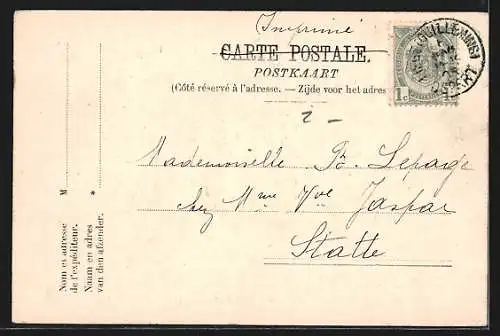 Imprimé
CARTE POSTALE.
POSTKAART
(Côté réservé à l'adresse. — Zijde voor het adres
1c
(GUILLEMINS)
2 -
Mademoiselle B. Lepage
chez Mme Vve Jaspar
Statte
M
*
Nom et adresse
de l'expéditeur.
Naam en adres
van den afzender.